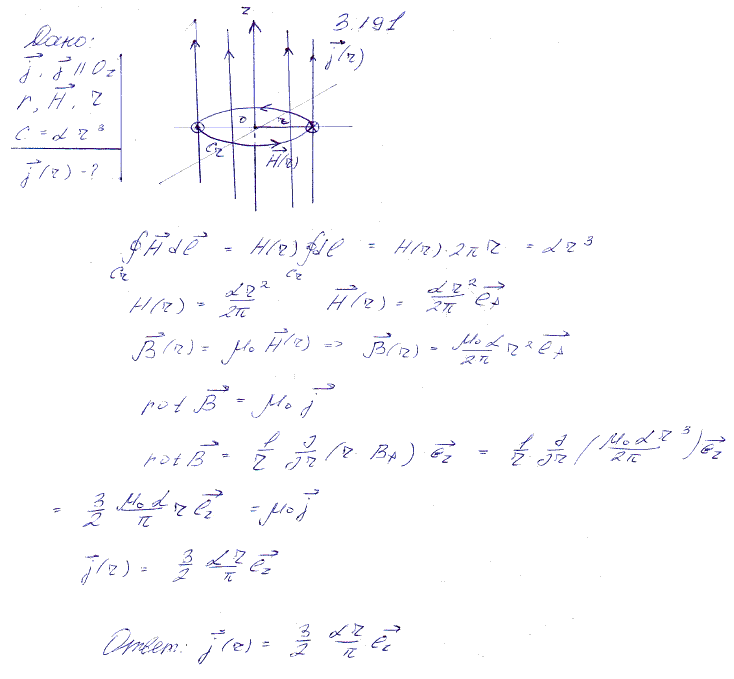 3.191
Дано:
z
j⃗, j⃗ ∥ Oz
j⃗(r)
r, H⃗, r
C = αr³
O r
j⃗(r) - ?
C_r
H⃗(r)
∮_{C_r} H⃗ dl⃗ = H(r) ∮_{C_r} dl = H(r)·2πr = αr³
H(r) = αr²/2π H⃗(r) = αr²/2π e⃗_φ
B⃗(r) = μ₀H⃗(r) => B⃗(r) = μ₀α/2π r² e⃗_φ
rot B⃗ = μ₀ j⃗
rot B⃗ = 1/r ∂/∂r (r · B_φ) e⃗_z = 1/r ∂/∂r (μ₀αr³/2π) e⃗_z
= 3/2 μ₀α/π r e⃗_z = μ₀ j⃗
j⃗(r) = 3/2 αr/π e⃗_z
Ответ: j⃗(r) = 3/2 αr/π e⃗_z